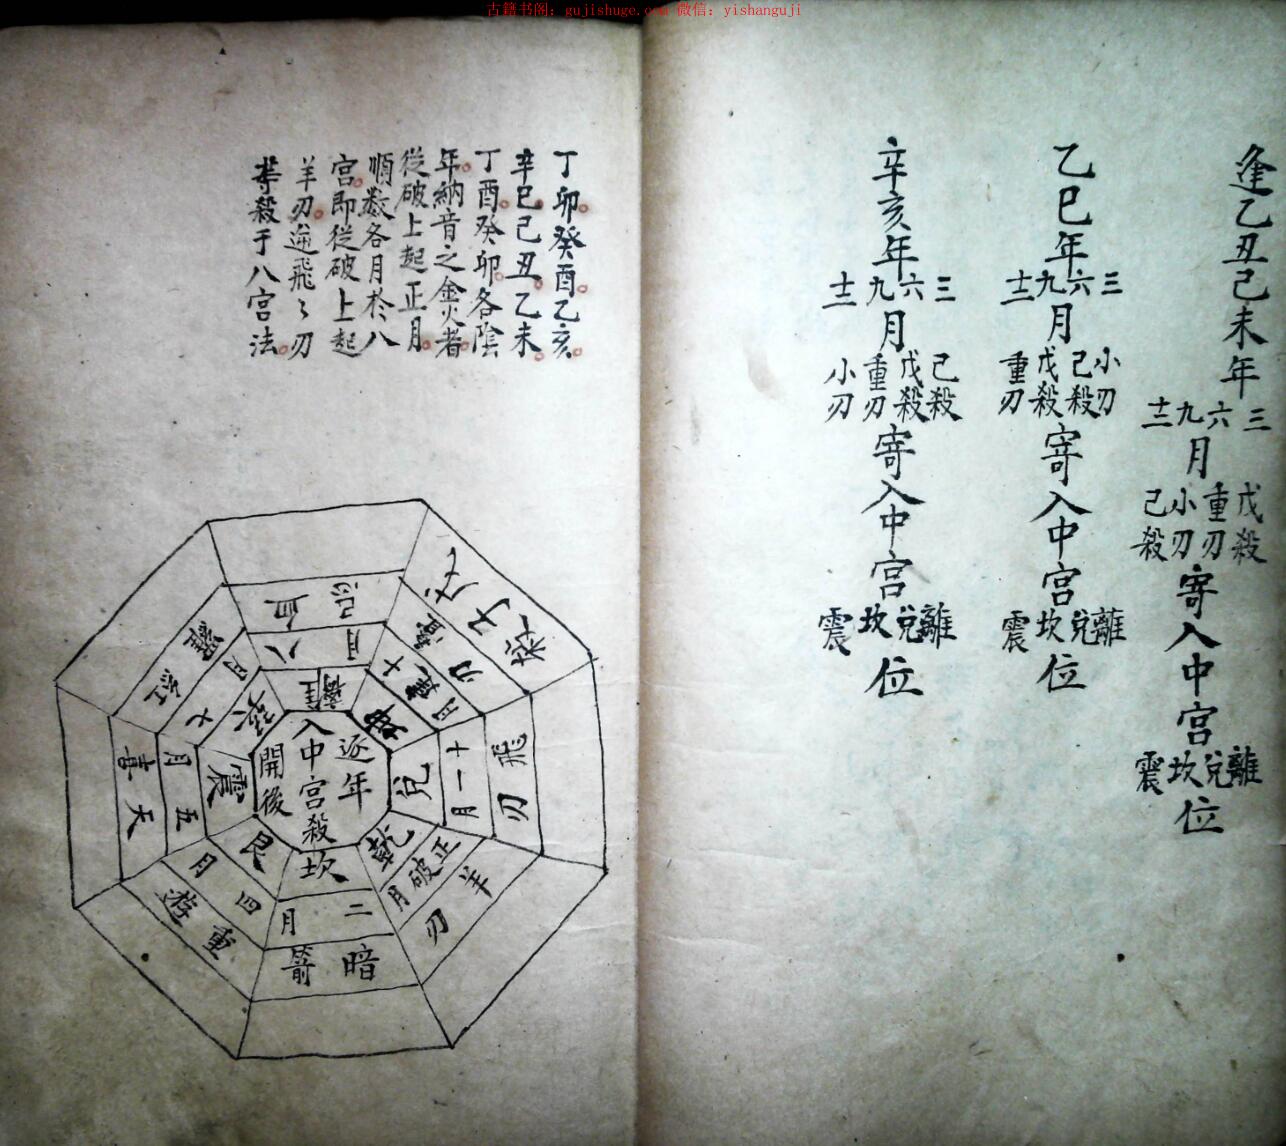 古籍书阁：gujishuge.com 微信：yishanguji
逢乙丑己未年
三六九十二
月
戊殺重刃小刃己殺
寄入中宮
離兌坎震
位
乙巳年
三六九十二
月
小刃己殺戊殺重刃
寄入中宮
離兌坎震
位
辛亥年
三六九十二
月
己殺戊殺重刃小刃
寄入中宮
離兌坎震
位
丁卯癸酉乙亥
辛巳己丑乙未
丁酉癸卯各陰
年納音之金火者
從破上起正月
順数各月於八
宮即從破上起
羊刃遁飛〻刃
等殺于八宮法
逐年
入中宮殺
開後
離
八月
血忌
坤
十月建
兌
十一月
飛刃
乾
正月破
羊刃
坎
二月
暗箭
艮
四月
重遊
震
五月
天喜
巽
七月